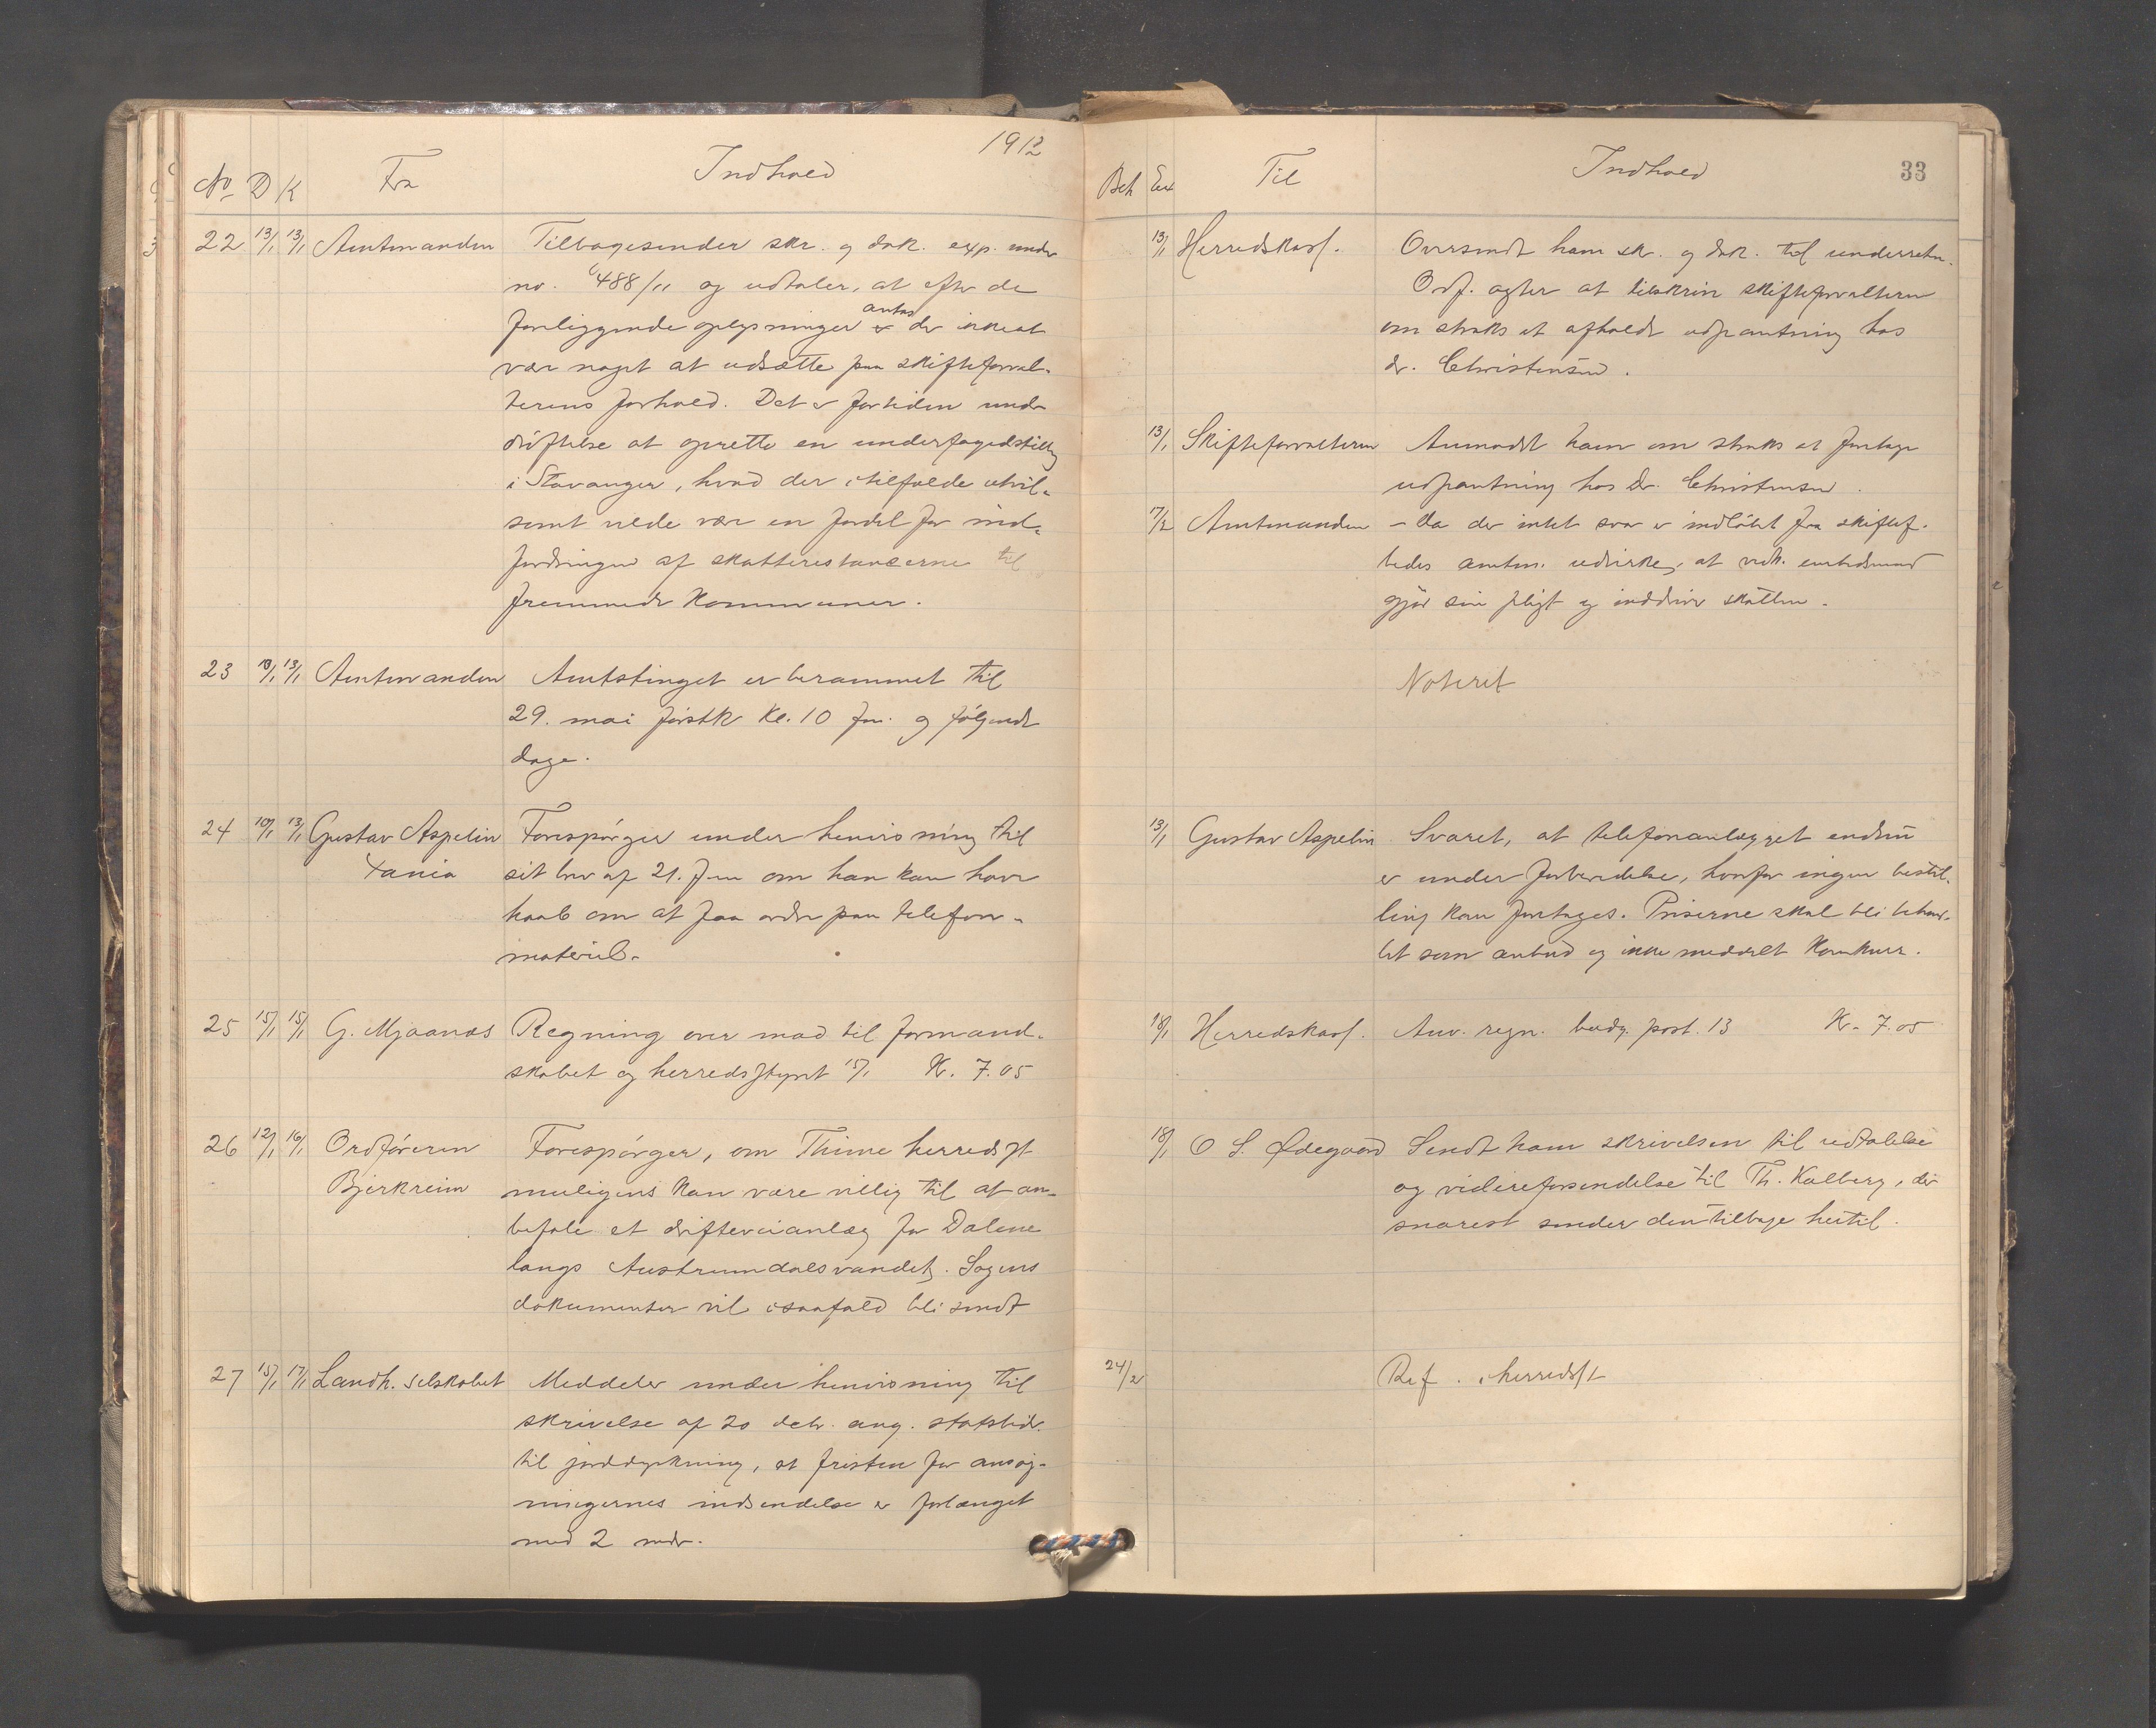 1912
No D K Fra Indhold
22 13/1 13/1 Amtmanden Tilbagesender skr. og dok. exp. under
no. 488/11 og udtaler, at efter de
foreliggende oplysninger antas der ikke at
være noget at udsætte paa skifteforval-
terens forhold. Det er fortiden under
drøftelse at oprette en underfogedstilling
i Stavanger, hvad der i tilfælde utvil-
somt vilde være en fordel for ind-
fordringen af skatterestancerne til
fremmede kommuner.
23 13/1 Amtmanden Amtstinget er berammet til
29. mai førstk kl. 10 fm. og følgende
dage.
24 10/1 13/1 Gustav Aspelin Forespørger under henvisning til
Xania sit brev af 21. f.m om han kan have
haab om at faa ordre paa telefon-
materiel.
25 15/1 15/1 G. Mjaanes Regning over mad til formand-
skabet og herredsstyret 15/1 Kr. 7.05
26 12/1 16/1 Ordføreren Forespørger, om Thime herredsst
Bjerkreim muligens kan være villig til at an-
befale et drifteveianlæg for Dalene
langs Austrumdalsvandet. Sagens
dokumenter vil i saafald bli sendt
27 15/1 17/1 Landh. selskabet Meddeler under henvisning til
skrivelse af 20 debr. ang. statsbidr.
til jorddyrkning, at fristen for ansøg-
ningernes indsendelse er forlænget
med 2 mdr.
33
Beh Exp Til Indhold
13/1 Herredskass. Oversendt ham skr. og dok. til underretn.
Ordf. agter at tilskrive skifteforvalteren
om straks at afholde udpantning hos
dr. Christensen.
13/1 Skifteforvalteren Anmodet ham om straks at foretage
udpantning hos Dr. Christensen.
17/2 Amtmanden – Da der intet svar er indløbet fra skiftef.
bedes amtm. udvirke, at vedk. embedsmand
gjør sin pligt og inddriver skatten.
Noteret
13/1 Gustav Aspelin Svaret, at telefonanlægget endnu
er under forberedelse, hvorfor ingen bestil-
ling kan foretages. Priserne skal bli behand-
let som anbud og ikke meddelt konkurr.
18/1 Herredskass. Anv. regn. budg. post. 13 Kr. 7.05
18/1 O S. Ødegaard Sendt ham skrivelsen til udtalelse
og videreforsendelse til Th. Kalberg, der
snarest sender den tilbage hertil.
24/2 Ref. i herredsst